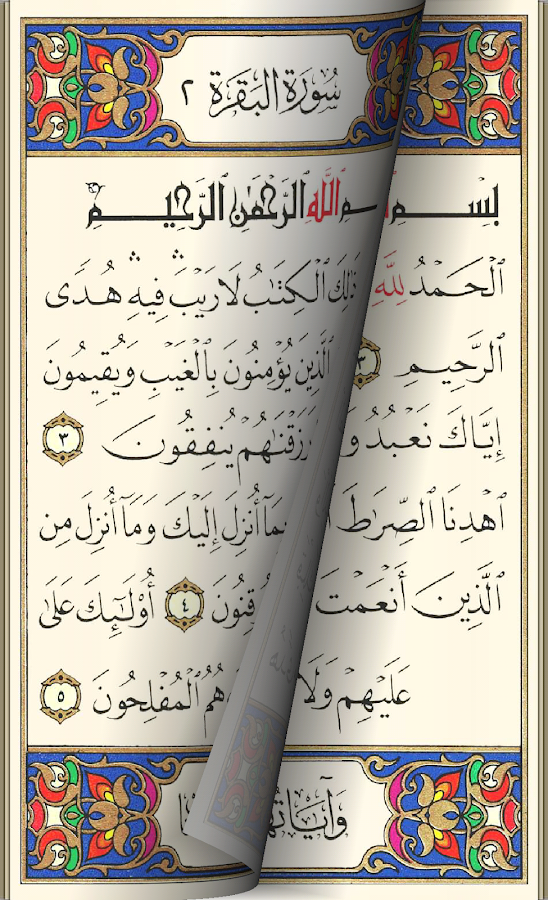 سُورَةُ البَقَرَةِ ٢
بِسْمِ ٱللَّهِ ٱلرَّحْمَٰنِ ٱلرَّحِيمِ
ٱلْحَمْدُ لِلَّهِ ذَٰلِكَ ٱلْكِتَٰبُ لَا رَيْبَ ۛ فِيهِ ۛ هُدًى
ٱلرَّحِيمِ ٣ ٱلَّذِينَ يُؤْمِنُونَ بِٱلْغَيْبِ وَيُقِيمُونَ
إِيَّاكَ نَعْبُدُ رَزَقْنَٰهُمْ يُنفِقُونَ ٣
ٱهْدِنَا ٱلصِّرَٰطَ بِمَآ أُنزِلَ إِلَيْكَ وَمَآ أُنزِلَ مِن
ٱلَّذِينَ أَنْعَمْتَ ٤ أُو۟لَٰٓئِكَ عَلَىٰ
عَلَيْهِمْ وَلَا هُمُ ٱلْمُفْلِحُونَ ٥